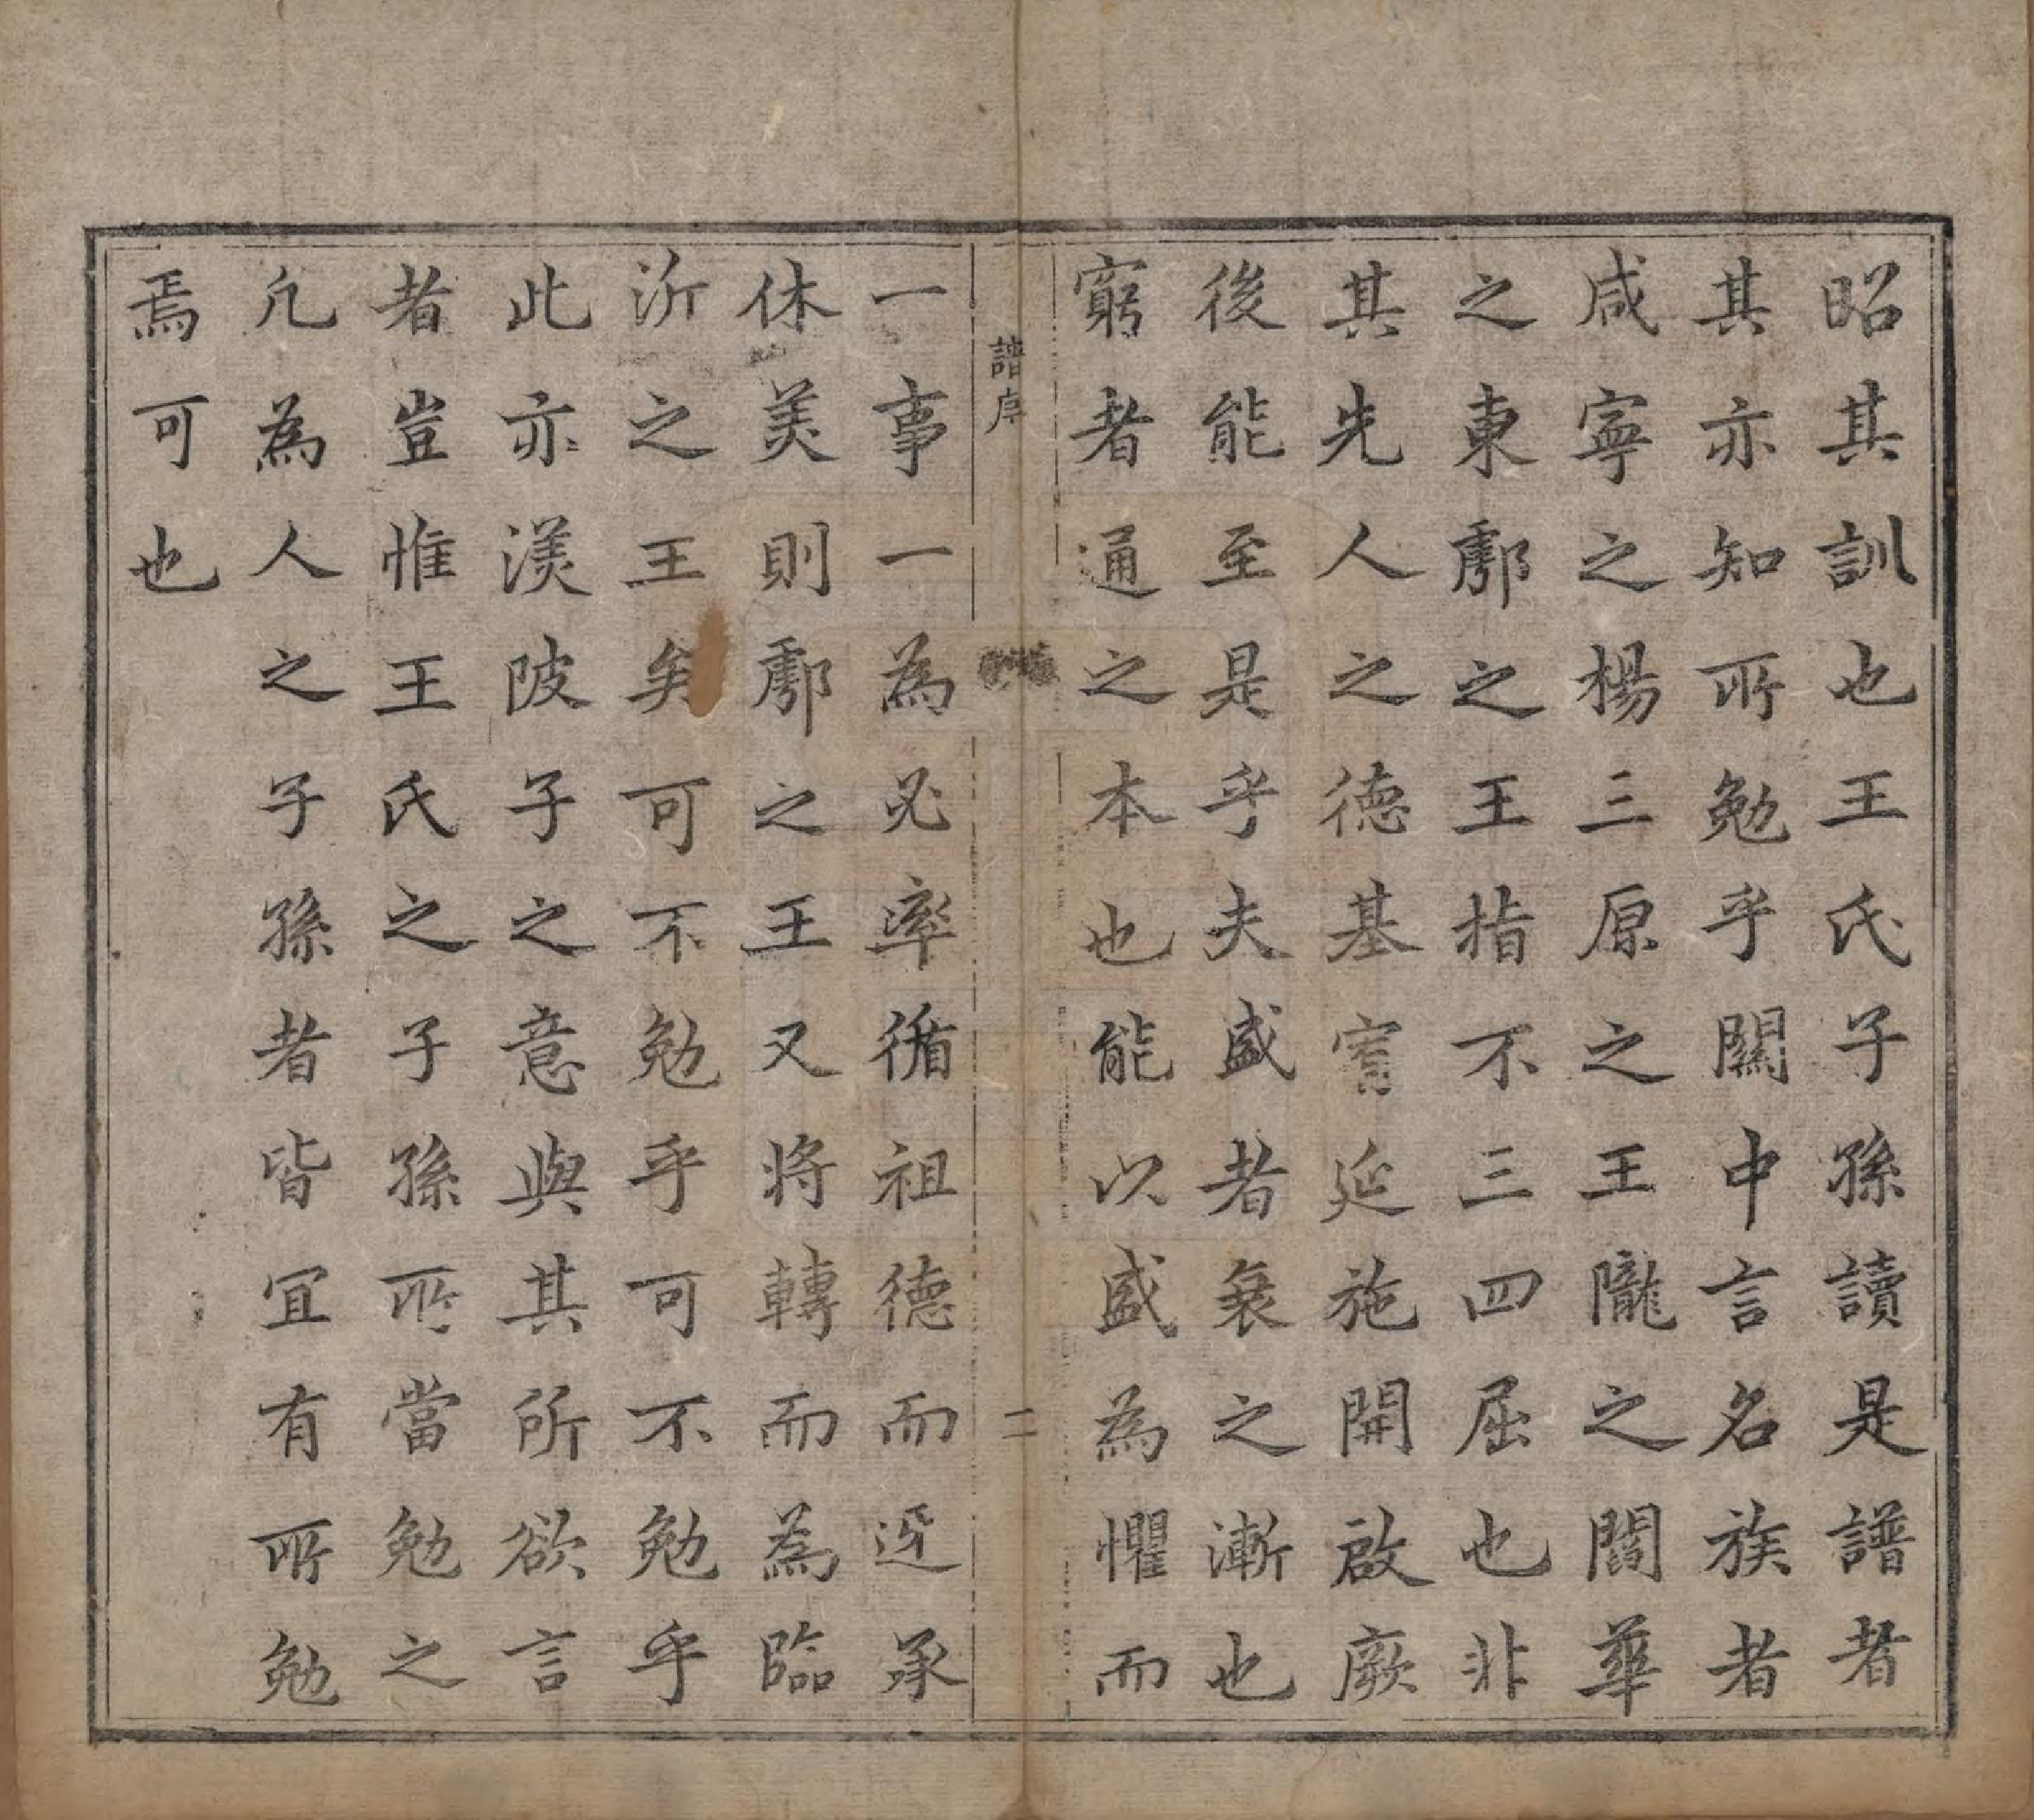 昭其訓也王氏子孫讀是譜者
其亦知所勉乎關中言名族者
咸寧之楊三原之王隴之閻華
之東鄠之王指不三四屈也非
其先人之德基富延施開啟厥
後能至是乎夫盛者衰之漸也
窮者通之本也能以盛為懼而
譜序
二
一事一為必率循祖德而迓承
休美則鄠之王又將轉而為臨
沂之王矣可不勉乎可不勉乎
此亦渼陂子之意與其所欲言
者豈惟王氏之子孫所當勉之
凢為人之子孫者皆宜有所勉
焉可也